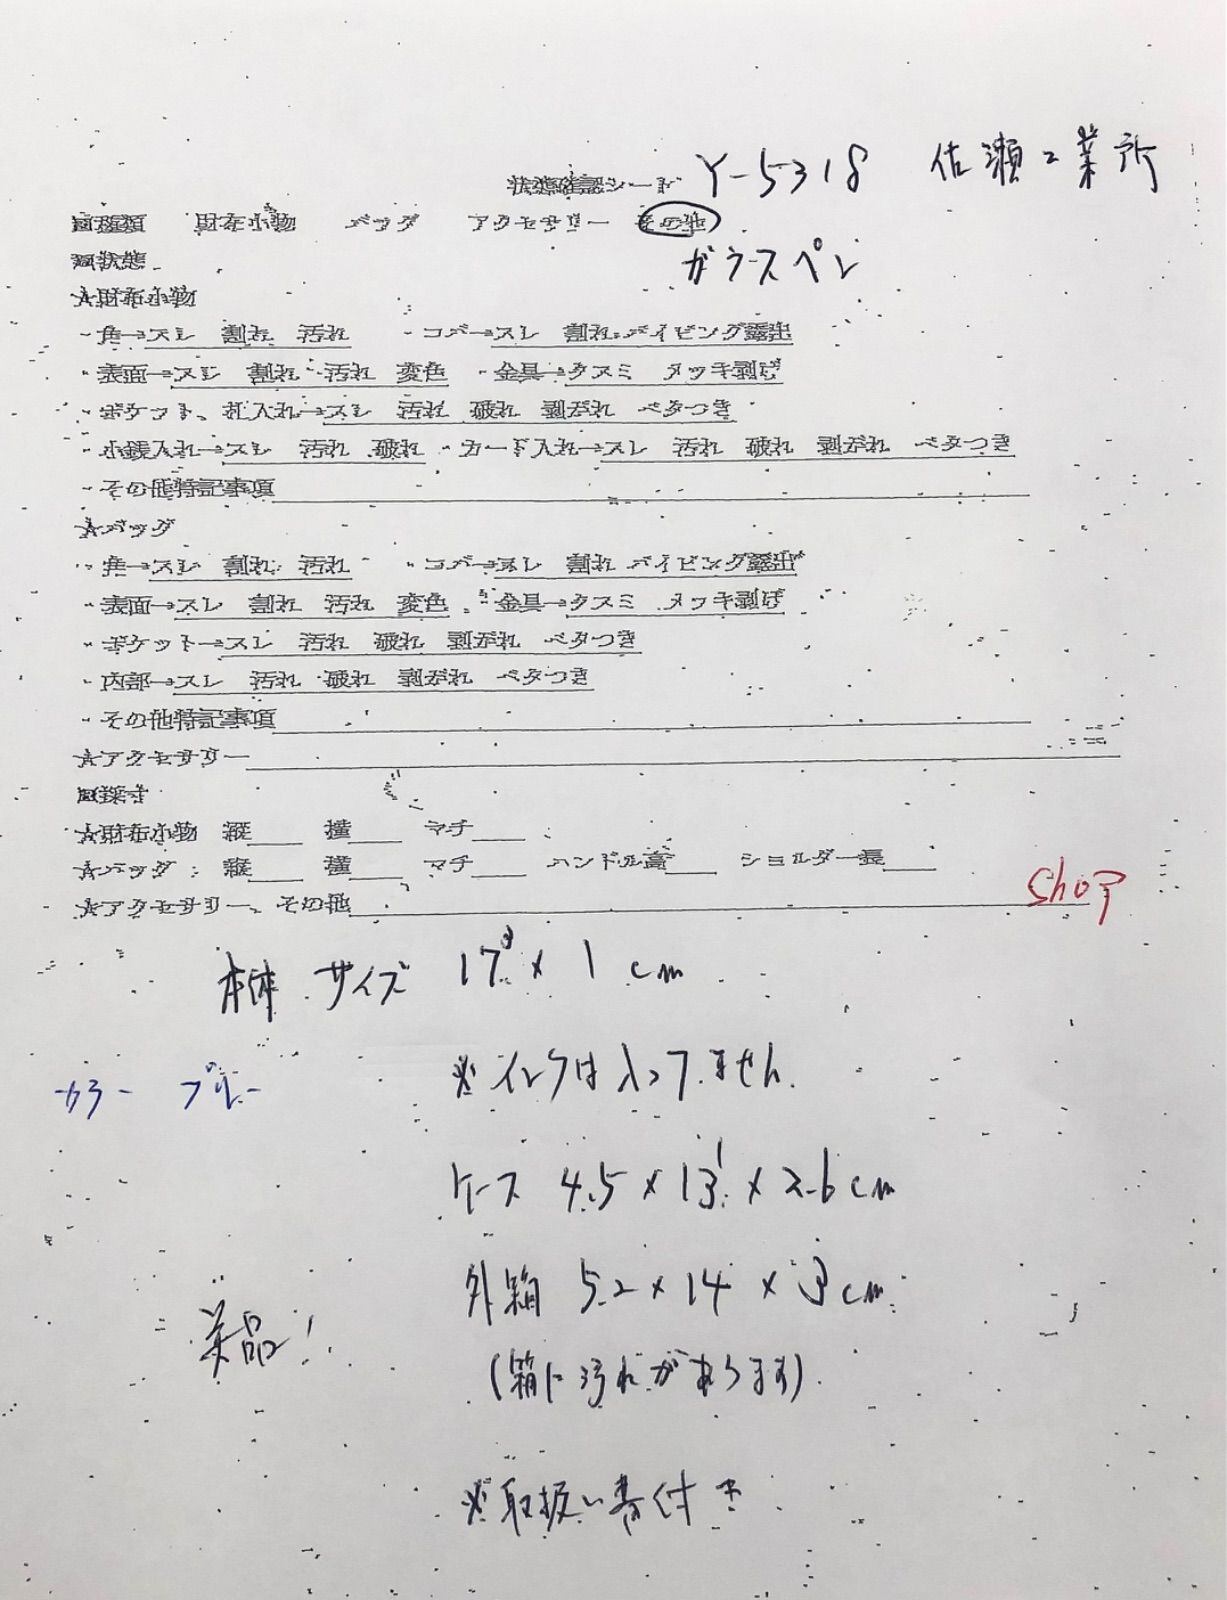 Y-5318 佐瀬工業所
状態確認シート
■種類 財布小物 バッグ アクセサリー その他
ガラスペン
■状態
☆財布小物
・角→スレ 割れ 汚れ ・コバ→スレ 割れ パイピング露出
・表面→スレ 割れ 汚れ 変色 ・金具→クスミ メッキ剥げ
・ポケット、札入れ→スレ 汚れ 破れ 剥がれ ベタつき
・小銭入れ→スレ 汚れ 破れ ・カード入れ→スレ 汚れ 破れ 剥がれ ベタつき
・その他特記事項
☆バッグ
・角→スレ 割れ 汚れ ・コバ→スレ 割れ パイピング露出
・表面→スレ 割れ 汚れ 変色 ・金具→クスミ メッキ剥げ
・ポケット→スレ 汚れ 破れ 剥がれ ベタつき
・内部→スレ 汚れ 破れ 剥がれ ベタつき
・その他特記事項
☆アクセサリー
■採寸
☆財布小物 縦 横 マチ
☆バッグ: 縦 横 マチ ハンドル高 ショルダー長
☆アクセサリー、その他
shop
本体 サイズ 17 × 1 cm
※インクは入ってません。
カラー ブルー
ケース 4.5 × 13 × 2.6 cm
外箱 5.2 × 14 × 3 cm
美品!
(箱に汚れがあります)
※取扱い書付き